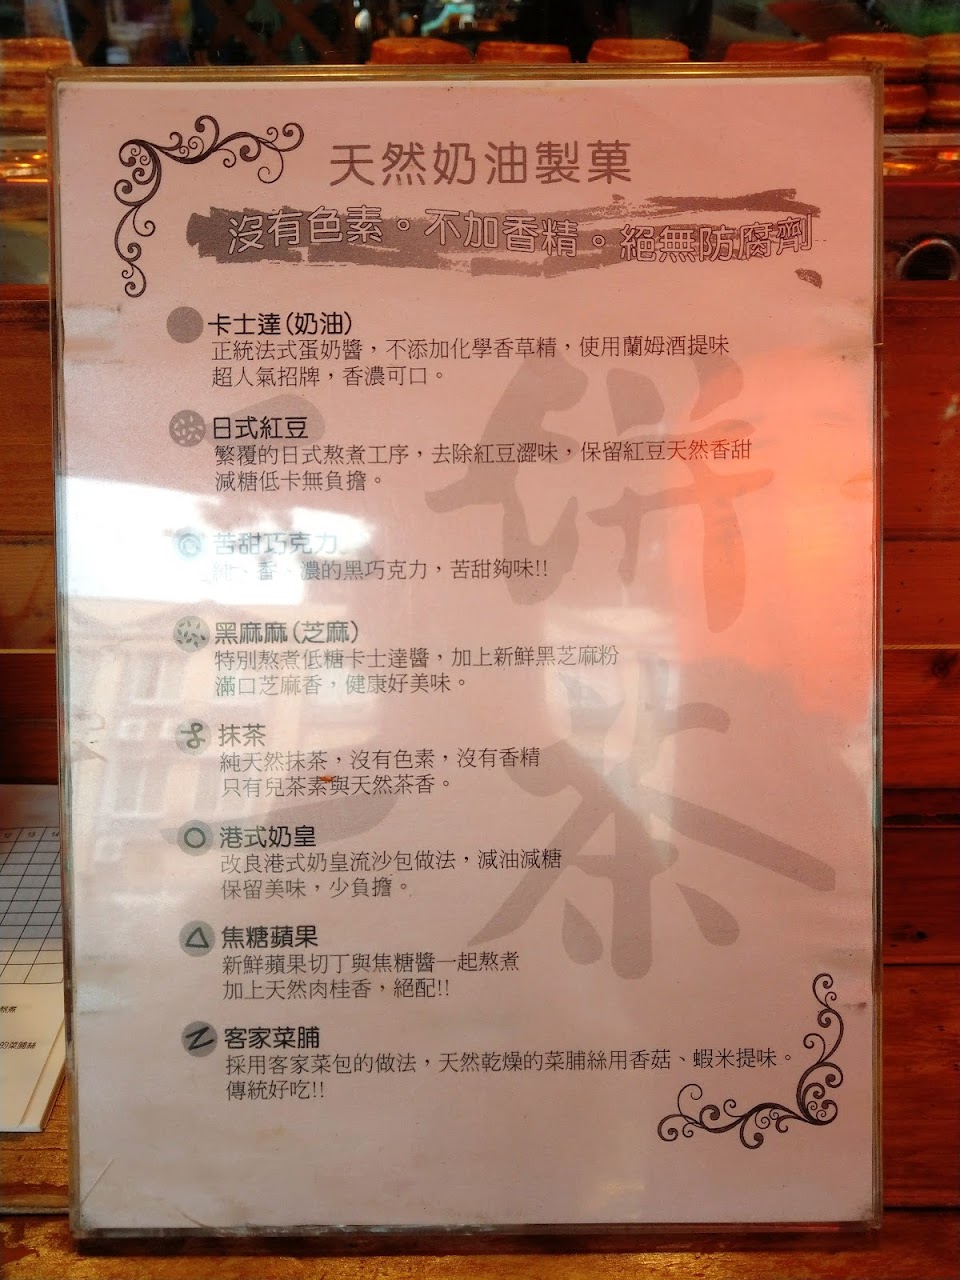 天然奶油製菓
沒有色素。不加香精。絕無防腐劑
卡士達(奶油)
正統法式蛋奶醬，不添加化學香草精，使用蘭姆酒提味
超人氣招牌，香濃可口。
日式紅豆
繁覆的日式熬煮工序，去除紅豆澀味，保留紅豆天然香甜
減糖低卡無負擔。
苦甜巧克力
純、香、濃的黑巧克力，苦甜夠味!!
黑麻麻(芝麻)
特別熬煮低糖卡士達醬，加上新鮮黑芝麻粉
滿口芝麻香，健康好美味。
抹茶
純天然抹茶，沒有色素，沒有香精
只有兒茶素與天然茶香。
港式奶皇
改良港式奶皇流沙包做法，減油減糖
保留美味，少負擔。
焦糖蘋果
新鮮蘋果切丁與焦糖醬一起熬煮
加上天然肉桂香，絕配!!
客家菜脯
採用客家菜包的做法，天然乾燥的菜脯絲用香菇、蝦米提味。
傳統好吃!!
餅
茶
12 13 14
的菜脯絲